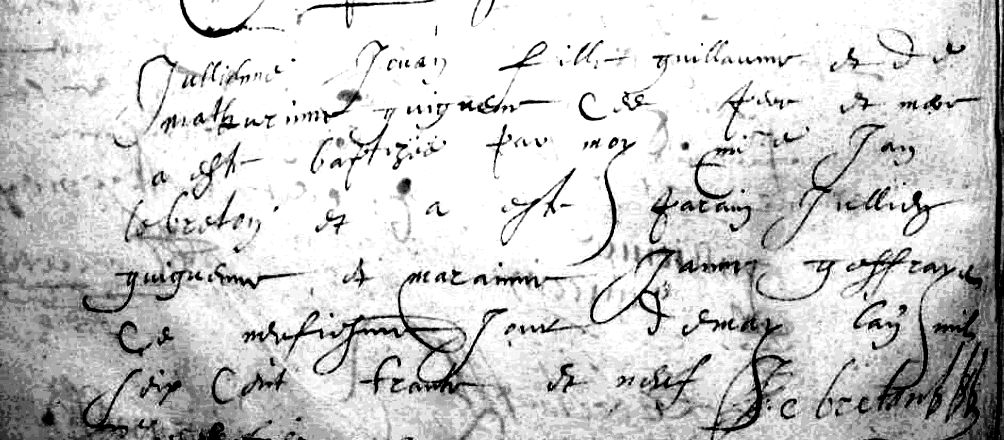 Jullienne Jouan fille guillaume et de
mathurinne guigueno ses pere et mere
a este baptisée par moy Jan
lebreton et a esté parain Jullien
guigueno et maraine Janne geffraye
Ce neufiesme Jour de may lan mil
seix cent trante et neuf
J. Lebreton